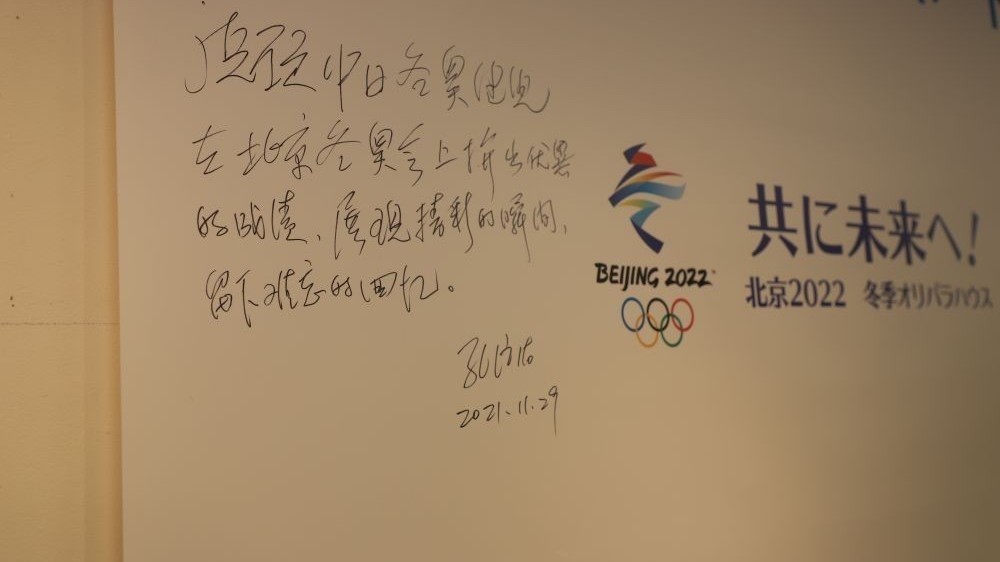 中日冬奥健儿
在北京冬奥会上拼出优异
的成绩、展现精彩的瞬间、
留下难忘的回忆。
孔铉佑
2021.11.29
BEIJING 2022
共に未来へ!
北京2022 冬季オリパラハウス